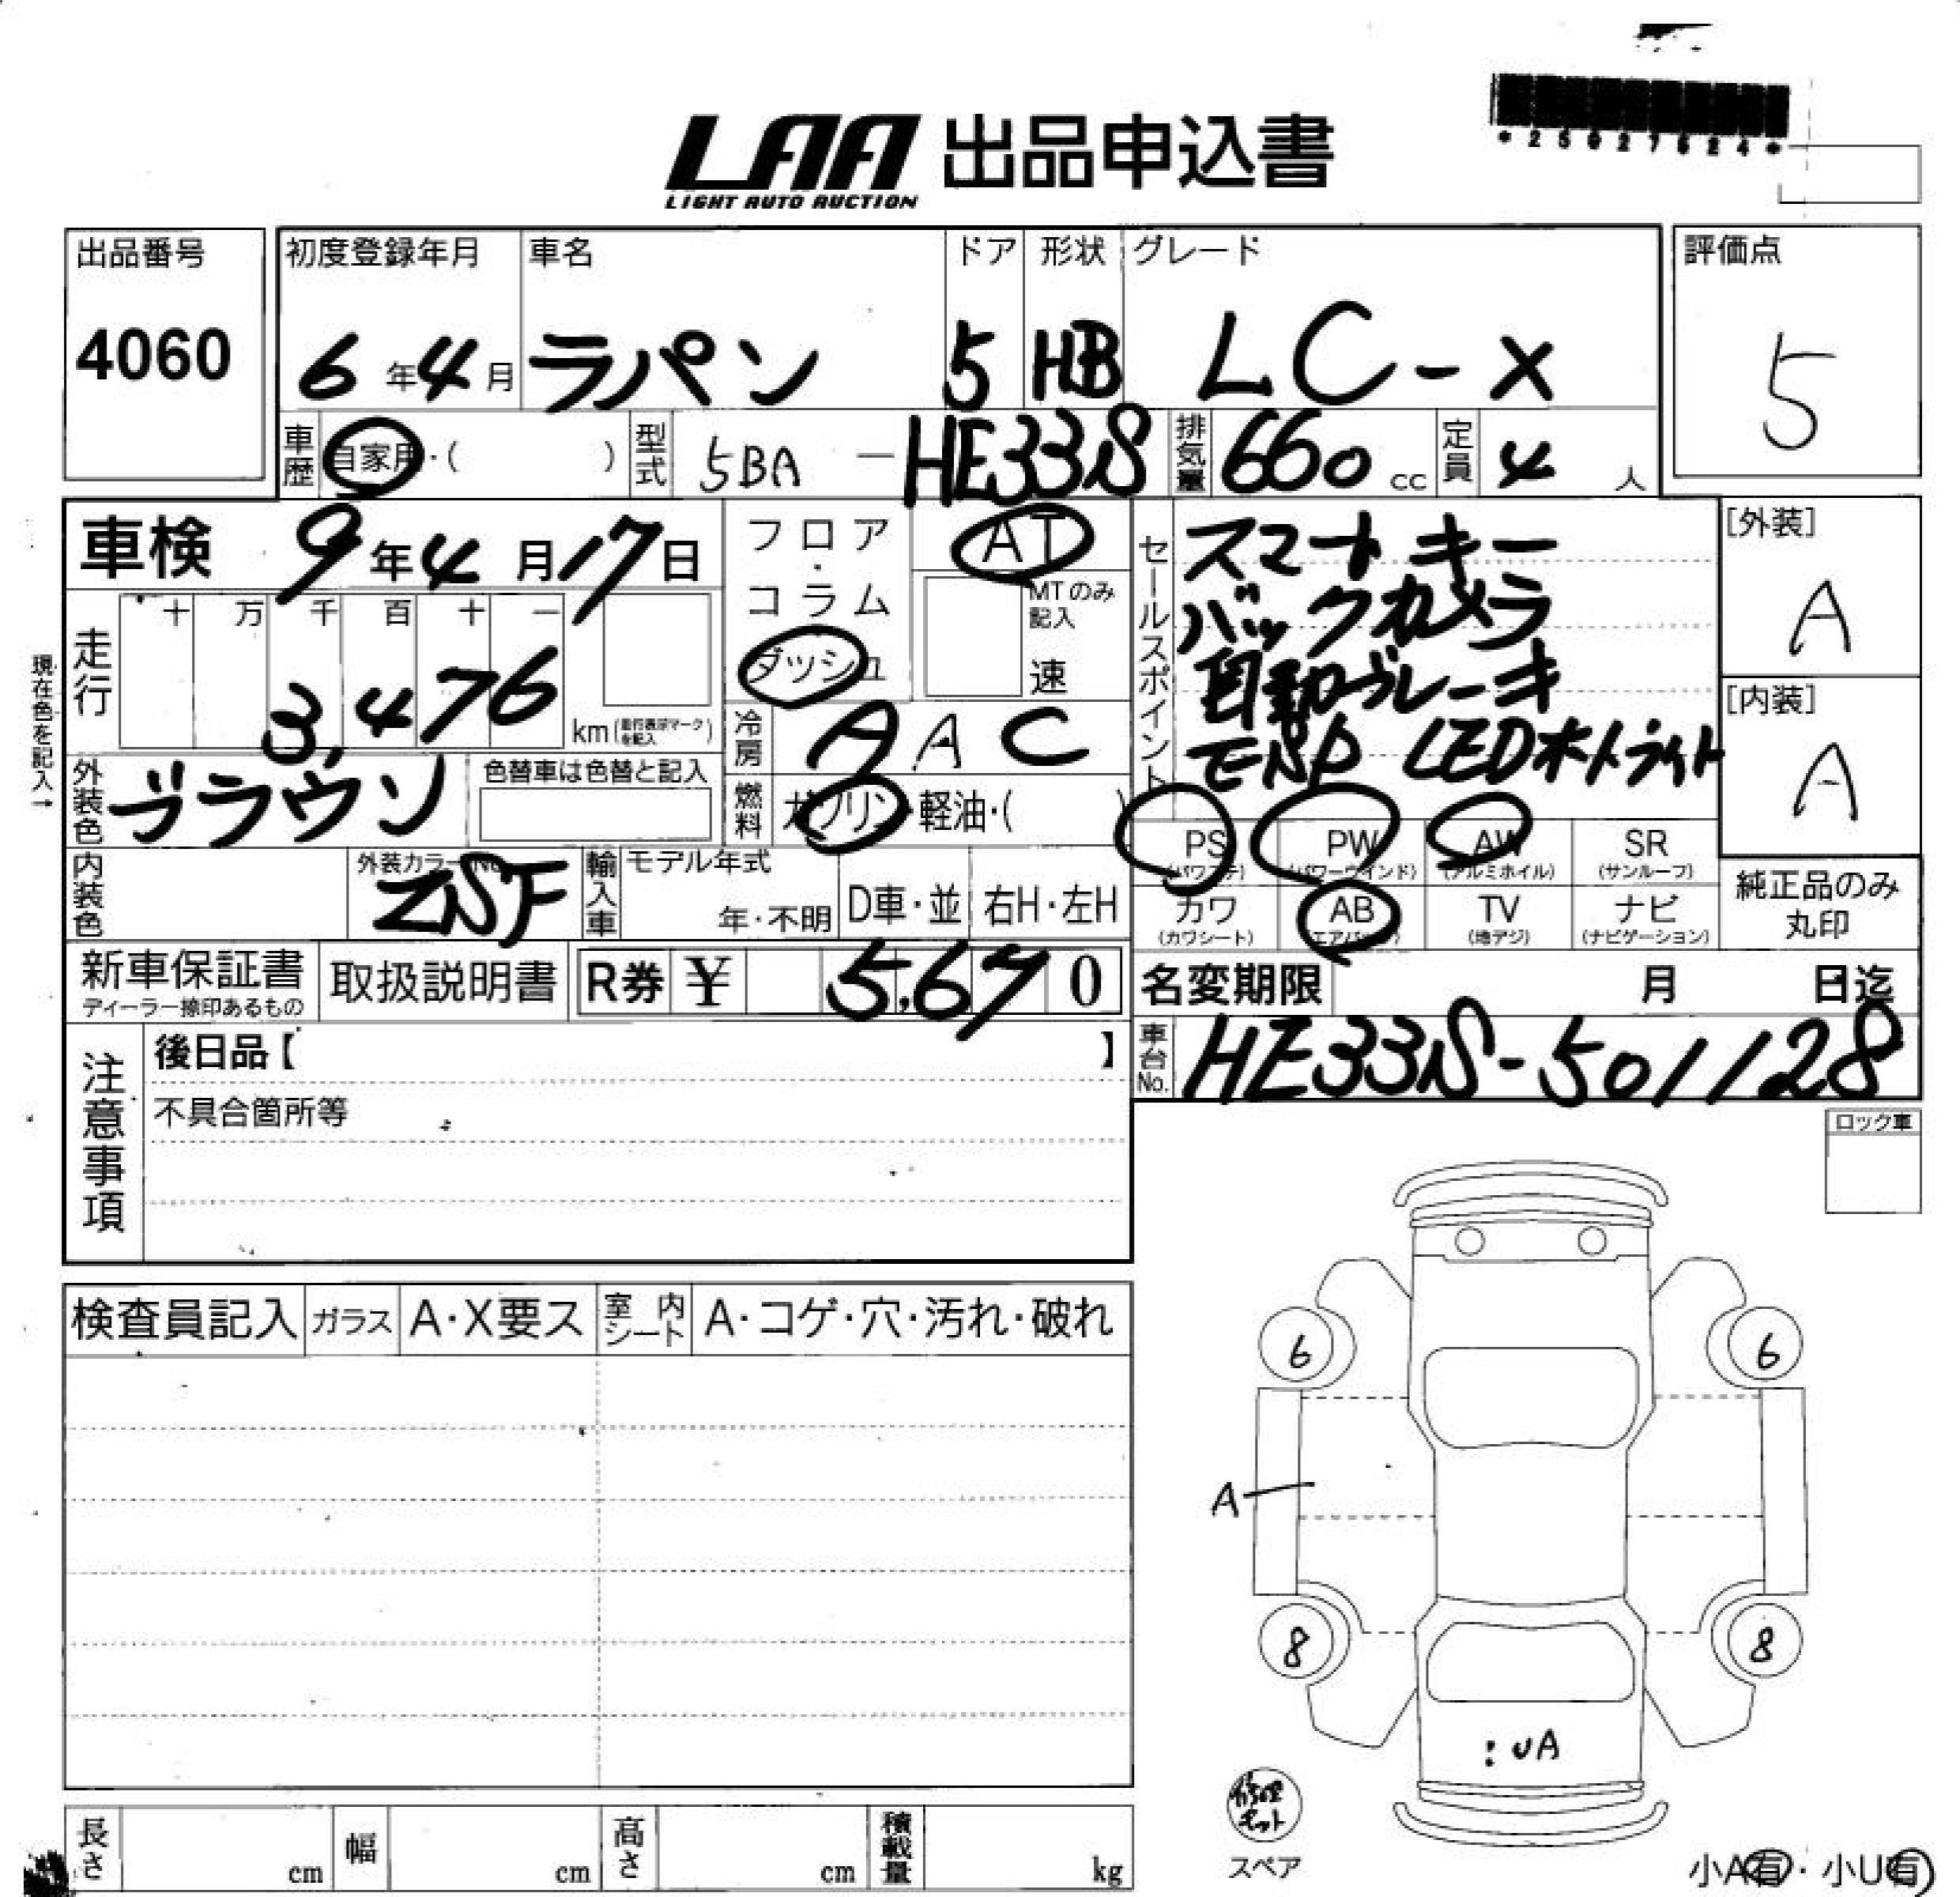 *25027624*
LAA 出品申込書
LIGHT AUTO AUCTION
出品番号
4060
初度登録年月 車名 ドア 形状 グレード
6年4月 ラパン 5 HB LC-X
評価点
5
車歴 自家用・( ) 型式 5BA-HE33S 排気量 660 cc 定員 4人
車検 9年4月17日
フロア・コラム
ダッシュ
AT
MTのみ記入
速
走行 十 万 千 百 十 一
3,476 km (走行表示マークを記入)
現在色を記入→
冷房 A AAC
外装色 ブラウン
色替車は色替と記入
燃料 ガソリン・軽油・( )
セールスポイント
スマートキー
バックカメラ
自動ブレーキ
ESP LEDオートライト
[外装]
A
[内装]
A
PS (パワステ) PW (パワーウインド) AW (アルミホイル) SR (サンルーフ)
カワ (カワシート) AB (エアバック) TV (地デジ) ナビ (ナビゲーション)
純正品のみ
丸印
内装色
外装カラーNo.
ZSF
輸入車 モデル年式
年・不明 D車・並 右H・左H
新車保証書
ディーラー捺印あるもの
取扱説明書 R券 ¥ 5,670
名変期限 月 日迄
車台No. HE33S-501128
注意事項
後日品【 】
不具合箇所等
ロック車
検査員記入 ガラス A・X要ス 室内シート A・コゲ・穴・汚れ・破れ
6 6
A
8 8
:UA
キット
スペア
長さ cm 幅 cm 高さ cm 積載量 kg
小A有・小U有